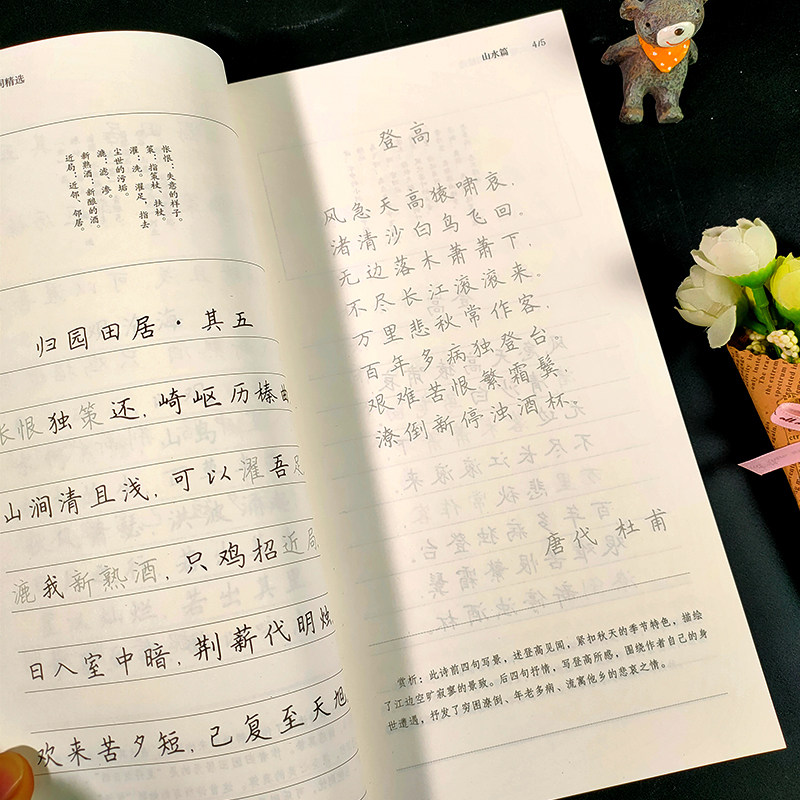 词精选
怅恨：失意的样子。
策：指策杖、扶杖。
濯：洗。濯足，指去
尘世的污垢。
漉：滤、渗。
新熟酒：新酿的酒。
近局：近邻、邻居。
归园田居·其五
怅恨独策还，崎岖历榛曲
山涧清且浅，可以濯吾足
漉我新熟酒，只鸡招近局
日入室中暗，荆薪代明烛
欢来苦夕短，已复至天旭
山水篇 4/5
登高
风急天高猿啸哀，
渚清沙白鸟飞回。
无边落木萧萧下，
不尽长江滚滚来。
万里悲秋常作客，
百年多病独登台。
艰难苦恨繁霜鬓，
潦倒新停浊酒杯。
唐代 杜甫
赏析：此诗前四句写景，述登高见闻，紧扣秋天的季节特色，描绘
了江边空旷寂寥的景致。后四句抒情，写登高所感，围绕作者自己的身
世遭遇，抒发了穷困潦倒、年老多病、流离他乡的悲哀之情。